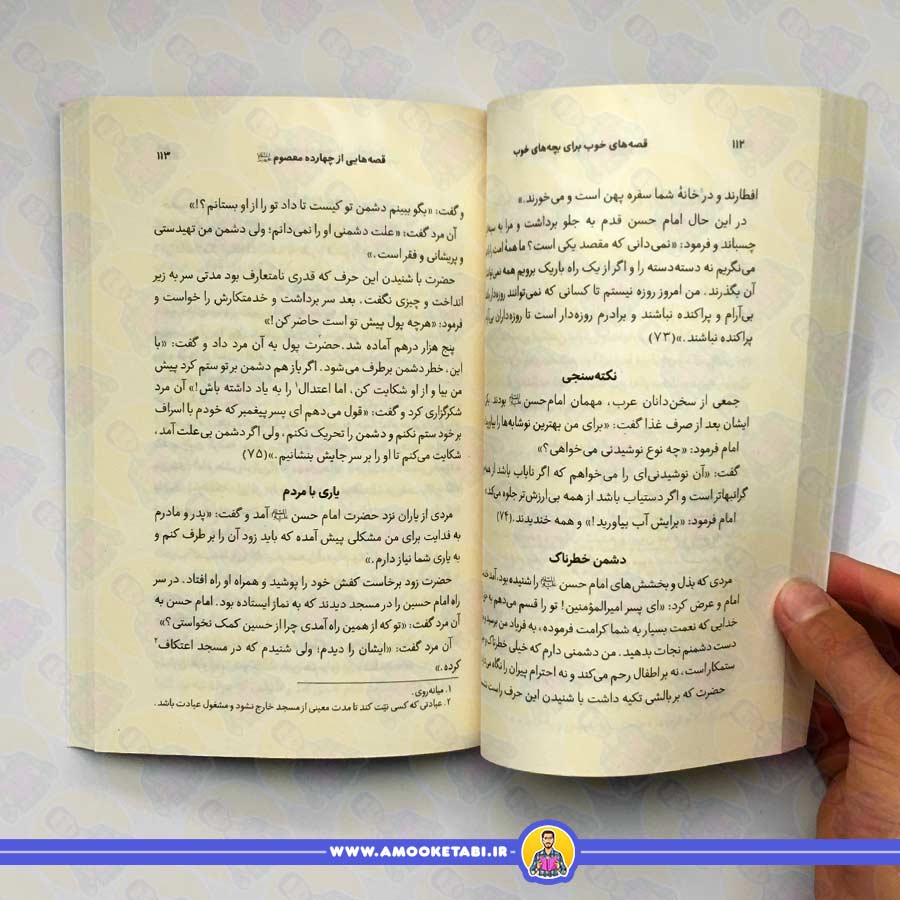 ۱۱۲
قصه‌های خوب برای بچه‌های خوب
افطارند و در خانهٔ شما سفره پهن است و می‌خورند.»
در این حال امام حسن قدم به جلو برداشت و مرا به
چسباند و فرمود: «نمی‌دانی که مقصد یکی است؟ ما همهٔ امت را
می‌نگریم نه دسته‌دسته را و اگر از یک راه باریک برویم همه
آن بگذرند. من امروز روزه نیستم تا کسانی که نمی‌توانند روزه‌دار
بی‌آرام و پراکنده نباشند و برادرم روزه‌دار است تا روزه‌داران
پراکنده نباشند.»(۷۳)
نکته‌سنجی
جمعی از سخن‌دانان عرب، مهمان امام‌حسن بودند.
ایشان بعد از صرف غذا گفت: «برای من بهترین نوشابه‌ها را
امام فرمود: «چه نوع نوشیدنی می‌خواهی؟»
گفت: «آن نوشیدنی‌ای را می‌خواهم که اگر نایاب باشد از
گرانبهاتر است و اگر دستیاب باشد از همه بی‌ارزش‌تر جلوه
امام فرمود: «برایش آب بیاورید!» و همه خندیدند.(۷۴)
دشمن خطرناک
مردی که بذل و بخشش‌های امام حسن را شنیده بود،
امام و عرض کرد: «ای پسر امیرالمؤمنین! تو را قسم می‌دهم به
خدایی که نعمت بسیار به شما کرامت فرموده، به فریاد من
دست دشمنم نجات بدهید. من دشمنی دارم که خیلی خطرناک
ستمکار است، نه بر اطفال رحم می‌کند و نه احترام پیران را نگاه
حضرت که بر بالشی تکیه داشت با شنیدن این حرف راست
قصه‌هایی از چهارده معصوم
۱۱۳
و گفت: «بگو ببینم دشمن تو کیست تا داد تو را از او بستانم؟!»
آن مرد گفت: «علت دشمنی او را نمی‌دانم؛ ولی دشمن من تهیدستی
و پریشانی و فقر است.»
حضرت با شنیدن این حرف که قدری نامتعارف بود مدتی سر به زیر
انداخت و چیزی نگفت. بعد سر برداشت و خدمتکارش را خواست و
فرمود: «هرچه پول پیش تو است حاضر کن!»
پنج هزار درهم آماده شد. حضرت پول به آن مرد داد و گفت: «با
این، خطر دشمن برطرف می‌شود. اگر باز هم دشمن بر تو ستم کرد پیش
من بیا و از او شکایت کن، اما اعتدال۱ را به یاد داشته باش!» آن مرد
شکرگزاری کرد و گفت: «قول می‌دهم ای پسر پیغمبر که خودم با اسراف
بر خود ستم نکنم و دشمن را تحریک نکنم، ولی اگر دشمن بی‌علت آمد،
شکایت می‌کنم تا او را بر سر جایش بنشانیم.»(۷۵)
یاری با مردم
مردی از یاران نزد حضرت امام حسن آمد و گفت: «پدر و مادرم
به فدایت برای من مشکلی پیش آمده که باید زود آن را بر طرف کنم و
به یاری شما نیاز دارم.»
حضرت زود برخاست کفش خود را پوشید و همراه او راه افتاد. در سر
راه امام حسین را در مسجد دیدند که به نماز ایستاده بود. امام حسن به
آن مرد گفت: «تو که از همین راه آمدی چرا از حسین کمک نخواستی؟»
آن مرد گفت: «ایشان را دیدم؛ ولی شنیدم که در مسجد اعتکاف۲
کرده.»
۱. میانه‌روی.
۲. عبادتی که کسی نیّت کند تا مدت معینی از مسجد خارج نشود و مشغول عبادت باشد.
WWW.AMOOKETABI.IR